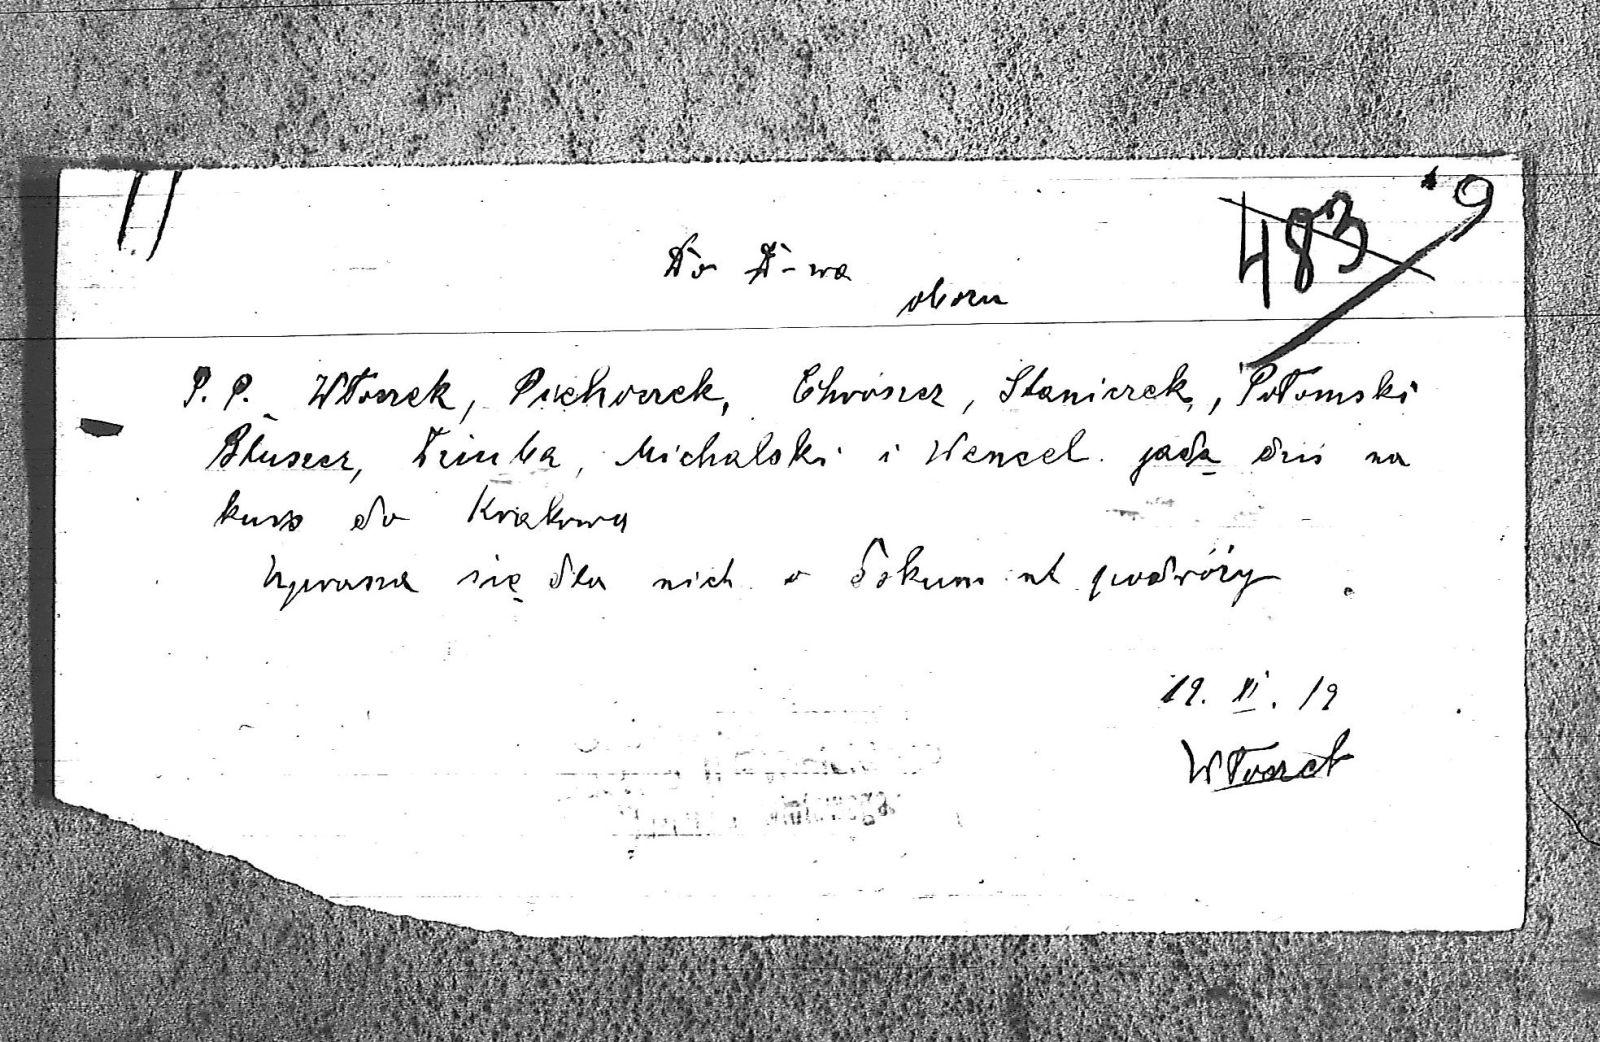 483 9
Do D-wa
obozu
P. P. Włoczek, Piechoczek, Chrószcz, Staniczek, Połomski
Błuszcz, Dziuba, Michalski i Wencel jadą dziś na
kurs do Krakowa
Uprasza się dla nich o dokument podróży
19. XI. 19
Włoczek